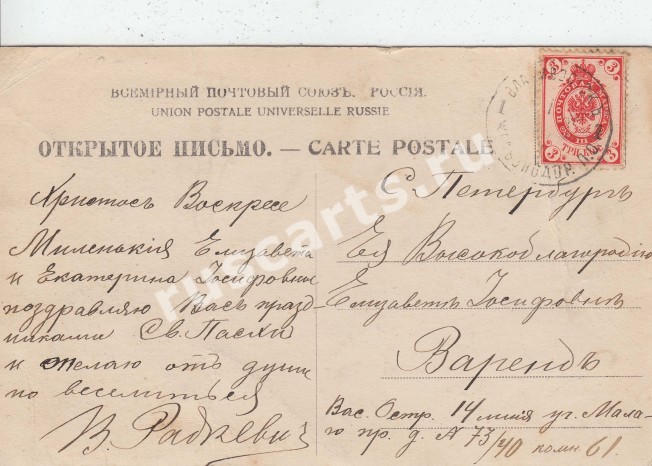 ВСЕМІРНЫЙ ПОЧТОВЫЙ СОЮЗЪ. РОССІЯ.
UNION POSTALE UNIVERSELLE RUSSIE
ОТКРЫТОЕ ПИСЬМО. — CARTE POSTALE
3 3
ПОЧТОВАЯ МАРКА
ТРИ КОП.
3 3
Христосъ Воскресе
Миленькія Елизавета
и Екатерина Іосифовны
поздравляю Васъ празд
никами Св. Пасхи
и желаю отъ души
по веселиться
В. Радкевичъ
С Петербургъ
Ея Высокоблагородію
Елизаветѣ Іосифовнѣ
Варендъ
Вас. Остр. 14 линія уг. Мала-
го пр. д. N 73/40 комн 61.
ruscarts.ru